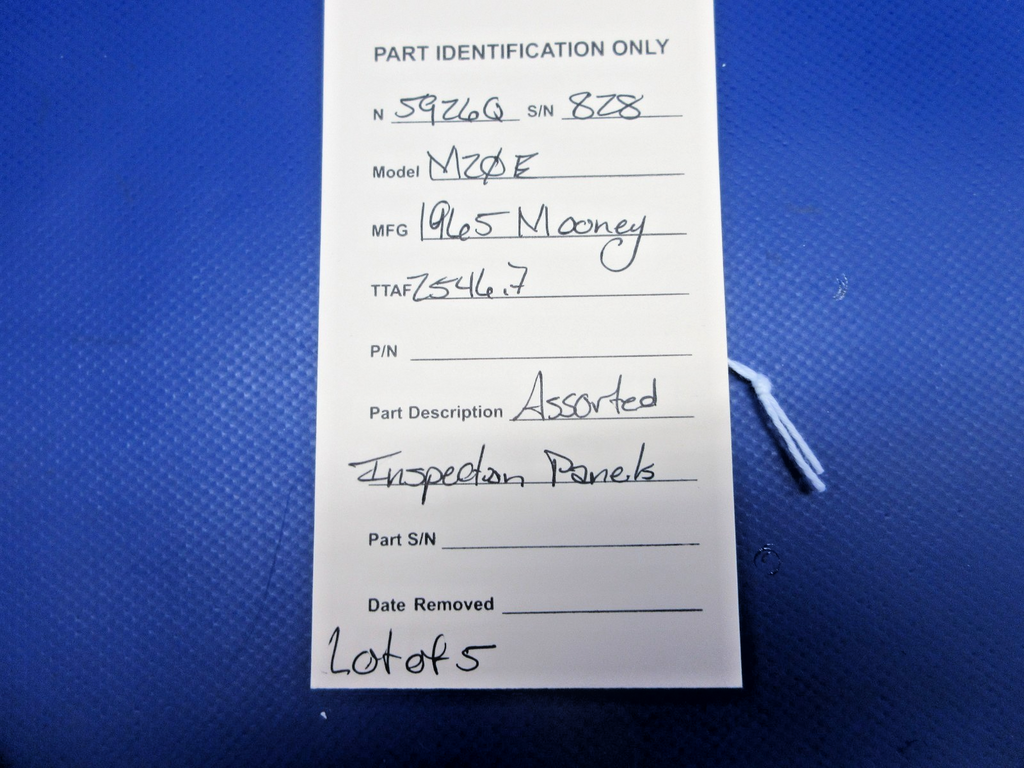 PART IDENTIFICATION ONLY
N 5926Q S/N 828
Model M20E
MFG 1965 Mooney
TTAF 2546.7
P/N
Part Description Assorted
Inspection Panels
Part S/N
Date Removed
Lot of 5